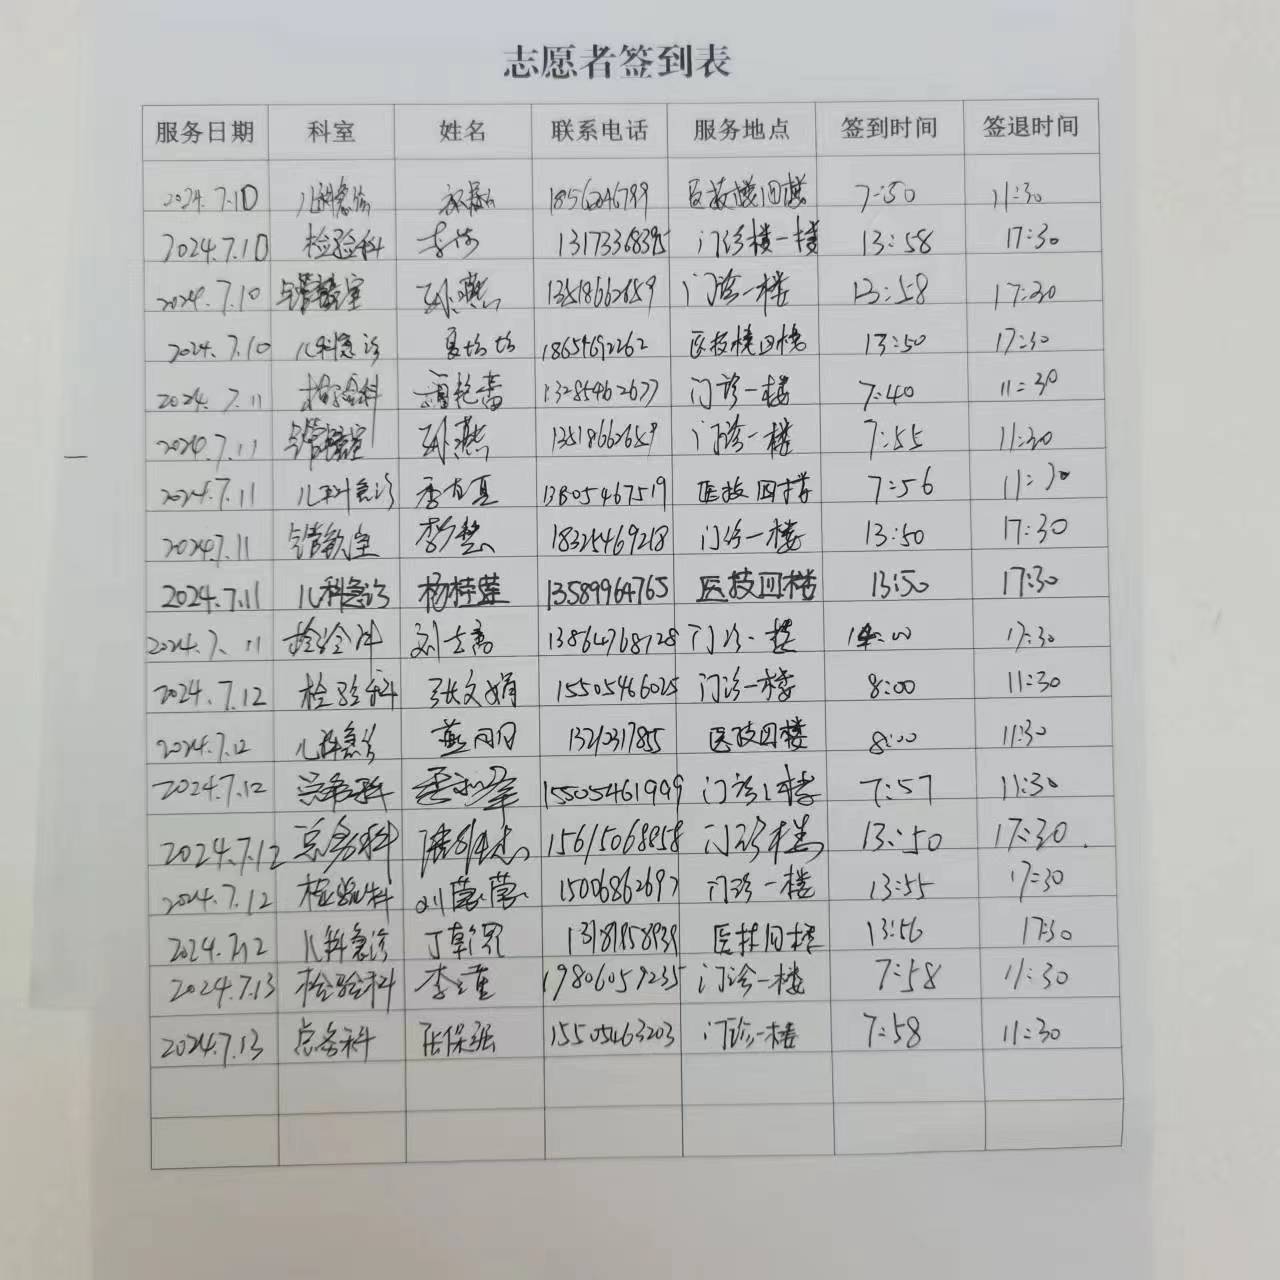 志愿者签到表
服务日期 科室 姓名 联系电话 服务地点 签到时间 签退时间
2024.7.10 儿科急诊 医技楼四楼 7:50 11:30
2024.7.10 检验科 13173368395 门诊楼一楼 13:58 17:30
2024.7.10 孙燕 13518662659 门诊一楼 13:58 17:30
2024.7.10 儿科急诊 夏坊坊 18654692262 医技楼四楼 13:50 17:30
2024.7.11 检验科 13285462677 门诊一楼 7:40 11:30
2024.7.11 孙燕 13518662659 门诊一楼 7:55 11:30
2024.7.11 儿科急诊 13805467519 医技四楼 7:56 11:30
20247.11 18325469218 门诊一楼 13:50 17:30
2024.7.11 儿科急诊 杨桂莲 13589964765 医技四楼 13:50 17:30
2024.7.11 检验科 13864768728 门诊一楼 14:00 17:30
2024.7.12 检验科 张文娟 15505466025 门诊一楼 8:00 11:30
2024.7.12 儿科急诊 燕丹丹 医技四楼 8:00 11:30
2024.7.12 总务科 15505461999 门诊1楼 7:57 11:30
2024.7.12 总务科 15615068858 门诊楼 13:50 17:30.
2024.7.12 检验科 刘蒙蒙 15006862697 门诊一楼 13:55 17:30
2024.7.12 儿科急诊 医技四楼 13:56 17:30
2024.7.13 检验科 李瑾 19806059235 门诊一楼 7:58 11:30
2024.7.13 总务科 张保强 15505463203 门诊一楼 7:58 11:30